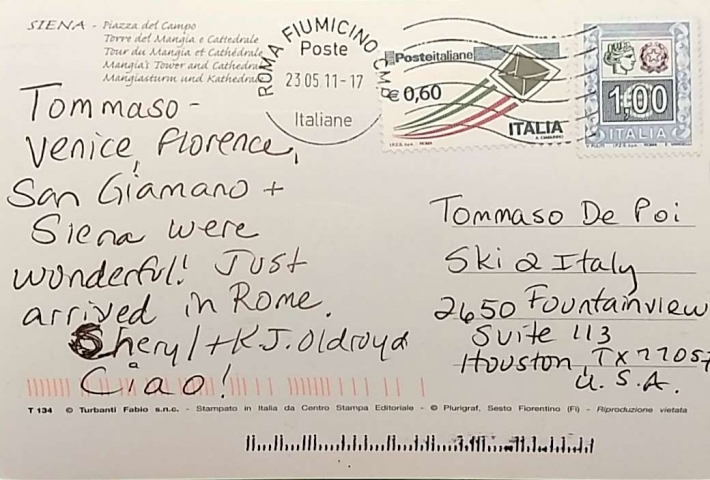 SIENA - Piazza del Campo
Torre del Mangia e Cattedrale
Tour du Mangia et Cathédrale
Mangia's Tower and Cathedral
Mangiasturm und Kathedrale
ROMA FIUMICINO CMP
Poste
23 05 11-17
Italiane
Posteitaliane
€ 0,60
ITALIA
I.P.Z.S. S.p.A. - ROMA
1,00
ITALIA
I.P.Z.S. S.p.A. - ROMA
Tommaso -
Venice, Florence,
San Giamano +
Siena were
wonderful! Just
arrived in Rome.
Sheryl + K.J. Oldroyd
Ciao!
Tommaso De Poi
Ski 2 Italy
2650 Fountainview
Suite 113
Houston, TX 77057
U.S.A.
T 134 © Turbanti Fabio s.n.c. - Stampato in Italia da Centro Stampa Editoriale - © Plurigraf, Sesto Fiorentino (Fi) - Riproduzione vietata